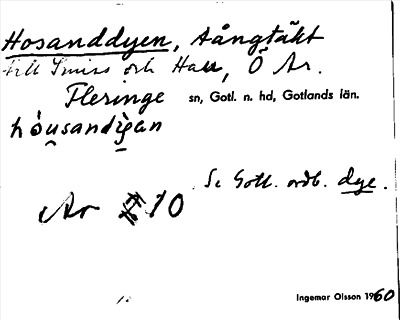 Hosanddyen, Aångtäkt
till Smiss och Hau, Ö Ar.
Fleringe sn, Gotl. n. hd, Gotlands län.
hòusandìgan
Se Gotl. ordb. dye.
Ar 10
Ingemar Olsson 1960